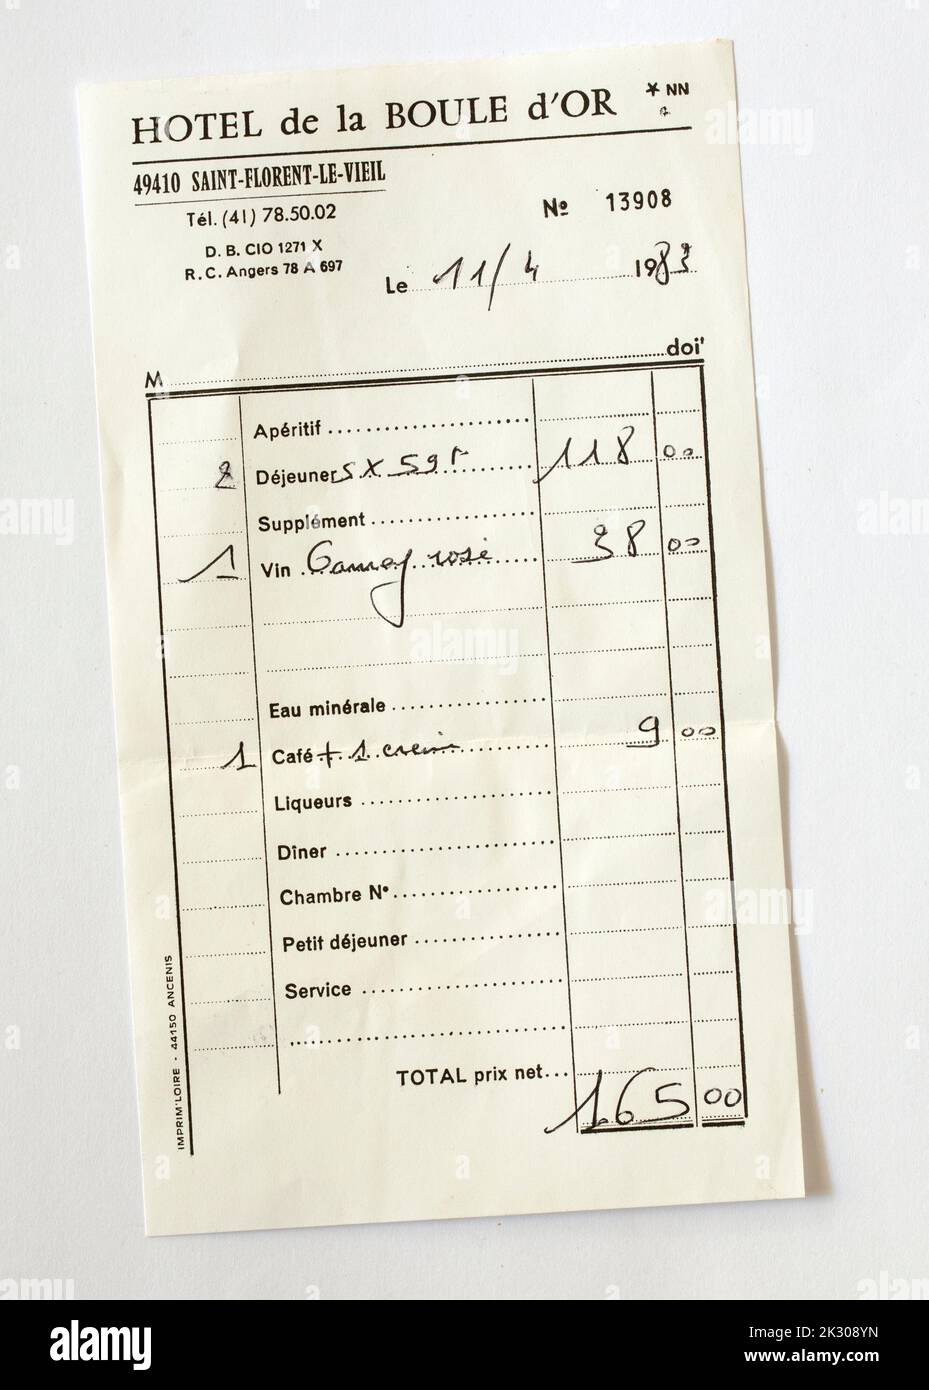 HOTEL de la BOULE d'OR * NN
49410 SAINT-FLORENT-LE-VIEIL
Tél. (41) 78.50.02
Nº 13908
D. B. CIO 1271 X
R. C. Angers 78 A 697
Le 11/4 1983
M doi'
Apéritif
2 Déjeuners x 59F 118 00
Supplément
1 Vin Gamay rosé 38 00
Eau minérale
1 Café + 1 crème 9 00
Liqueurs
Dîner
Chambre Nº
Petit déjeuner
Service
TOTAL prix net... 165 00
IMPRIM'LOIRE - 44150 ANCENIS
alamy
Image ID: 2K308YN
www.alamy.com